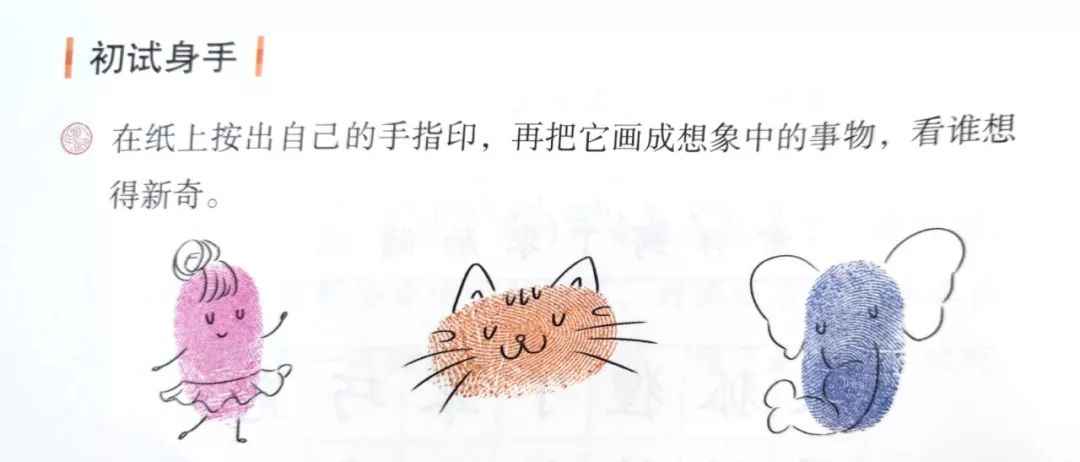 初试身手
在纸上按出自己的手指印，再把它画成想象中的事物，看谁想
得新奇。